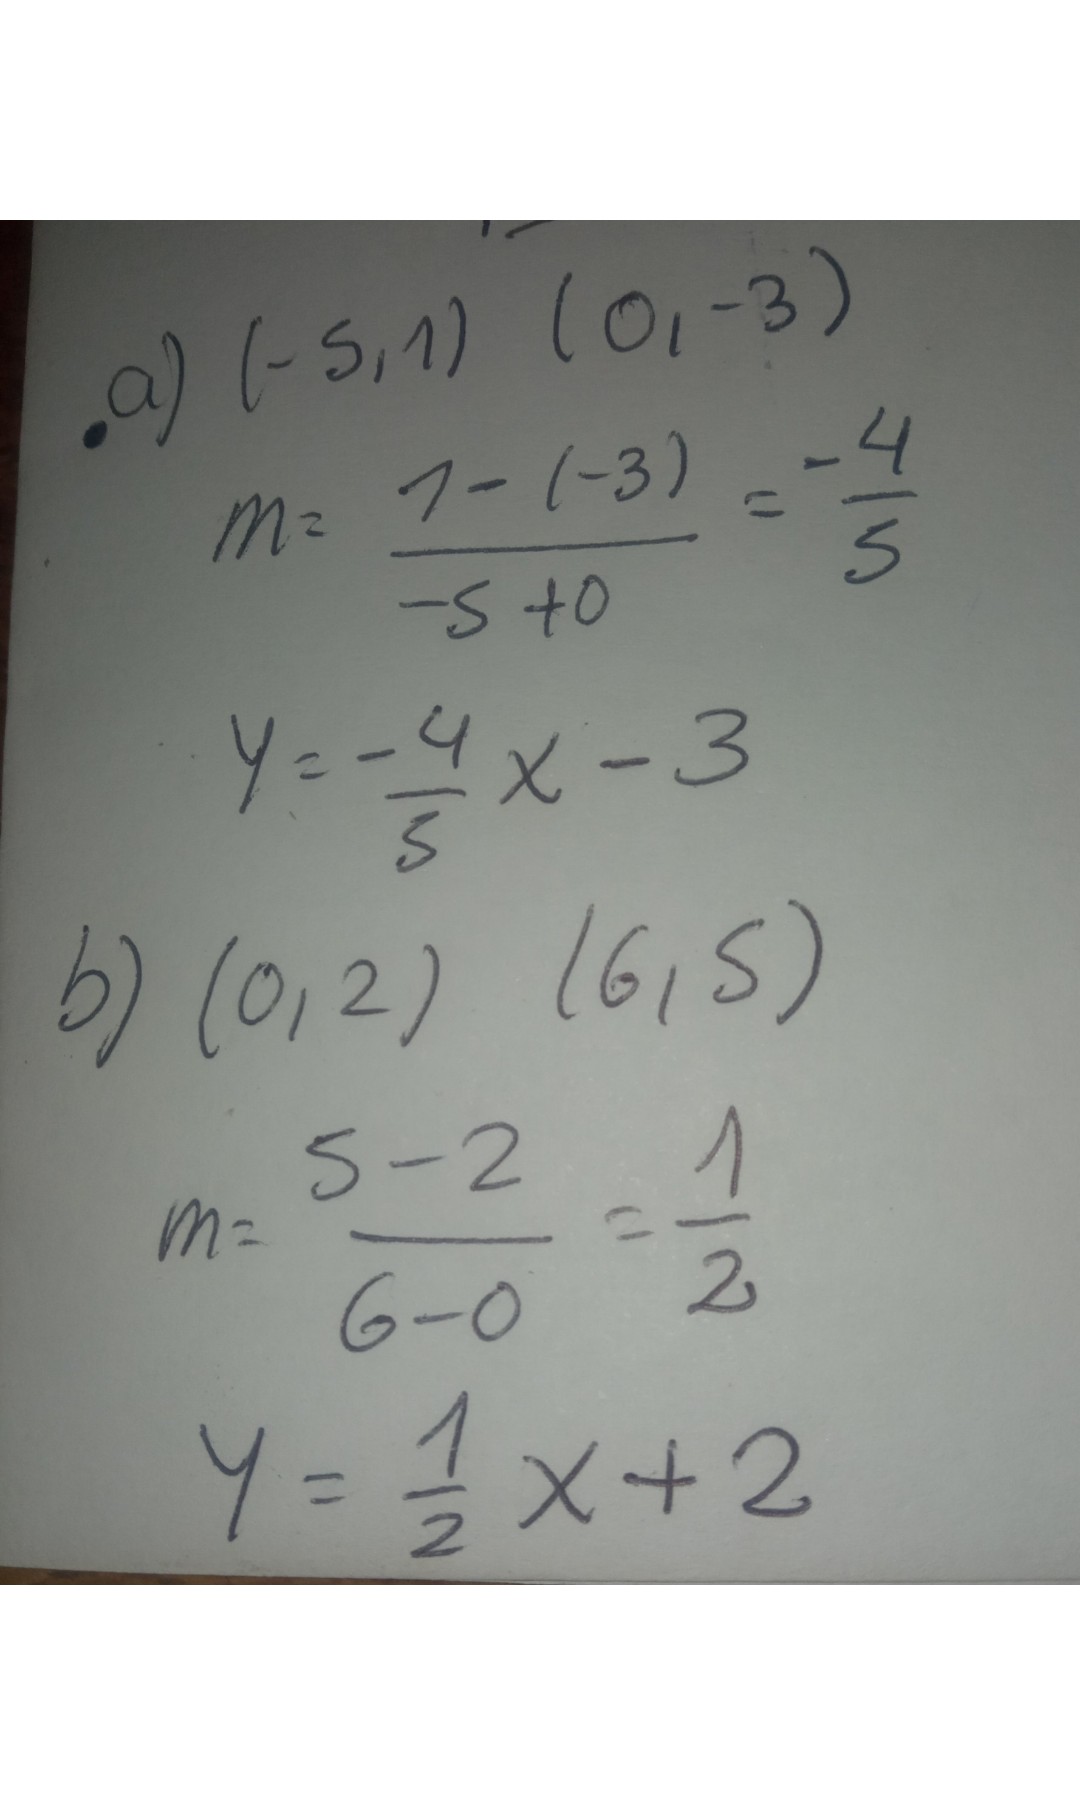 a) (-5,1) (0,-3)
m= 1-(-3)/-5+0 = -4/5
y= -4/5 x - 3
b) (0,2) (6,5)
m= 5-2/6-0 = 1/2
y = 1/2 x + 2